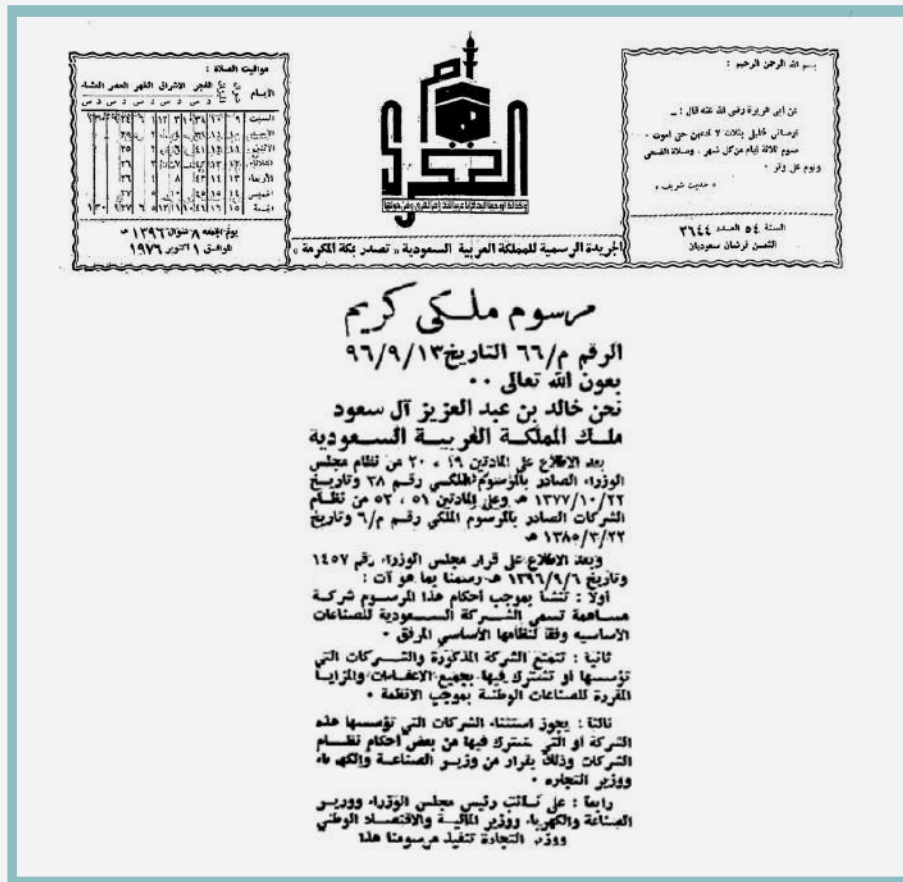 بسم الله الرحمن الرحيم :
عن ابى هريرة رضى الله عنه قال : ــ
اوصانى خليلى بثلاث لا ادعهن حتى اموت ٠
صوم ثلاثة ايام من كل شهر ، وصلاة الضحى
ونوم على وتر ٠
« حديث شريف »
السنة ٥٤ العدد ٣٦٤٤
الثمن قرشان سعوديان
أم القرى
الجريدة الرسمية للمملكة العربية السعودية « تصدر بمكة المكرمة »
مواقيت الصلاة :
الأيام
الفجر الاشراق الظهر العصر العشاء
د س د س د س د س د س
السبت
الاثنين
الثلاثاء
الأربعاء
الخميس
الجمعة
يوم الجمعة ٨ شوال ١٣٩٦ هـ
الموافق ١ اكتوبر ١٩٧٦
مرسوم ملكى كريم
الرقم م/٦٦ التاريخ ٩٦/٩/١٣
بعون الله تعالى ٠٠
نحن خالد بن عبد العزيز آل سعود
ملك المملكة العربية السعودية
بعد الاطلاع على المادتين ١٩ ، ٢٠ من نظام مجلس
الوزراء الصادر بالمرسوم الملكي رقم ٣٨ وتاريخ
١٣٧٧/١٠/٢٢ هـ وعلى المادتين ٥١ ، ٥٣ من نظام
الشركات الصادر بالمرسوم الملكي رقم م/٦ وتاريخ
١٣٨٥/٣/٢٢ هـ
وبعد الاطلاع على قرار مجلس الوزراء رقم ١٤٥٧
وتاريخ ١٣٩٦/٩/٦ هـ رسمنا بما هو آت :
أولا : تنشأ بموجب أحكام هذا المرسوم شركة
مساهمة تسمى الشركة السعودية للصناعات
الأساسيه وفقا لنظامها الأساسي المرفق ٠
ثانية : تتمتع الشركة المذكورة والشركات التي
تؤسسها أو تشترك فيها بجميع الاعفاءات والمزايا
المقررة للصناعات الوطنية بموجب الانظمة ٠
ثالثا : يجوز استثناء الشركات التي تؤسسها هذه
الشركة أو التي تشترك فيها من بعض أحكام نظام
الشركات وذلك بقرار من وزير الصناعة والكهرباء
ووزير التجاره ٠
رابعة : على نائب رئيس مجلس الوزراء ووزير
الصناعة والكهرباء ووزير المالية والاقتصاد الوطني
ووزير التجارة تنفيذ مرسومنا هذا